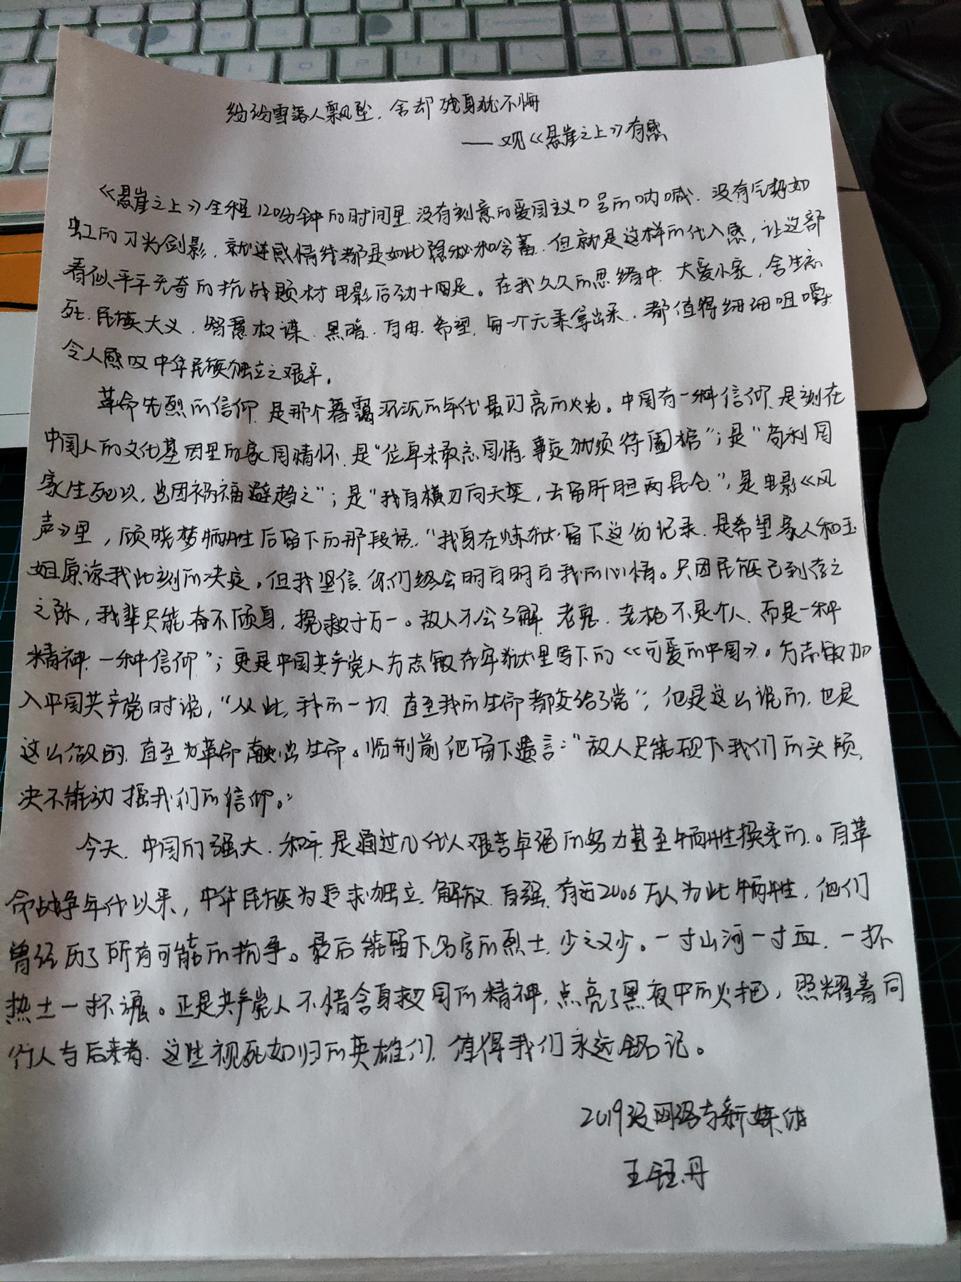 纷纷雪落人飘坠，舍却残身犹不悔
——观《悬崖之上》有感
《悬崖之上》全程120分钟的时间里，没有刻意的爱国主义口号的呐喊，没有气势如
虹的刀光剑影，就连感情线都是如此隐秘和含蓄，但就是这样的代入感，让这部
看似平平无奇的抗战题材电影后劲十足。在我久久的思绪中，大爱小家，舍生忘
死、民族大义、阴谋权谋、黑暗、自由、希望，每一个元素拿出来，都值得细细咀嚼
令人感叹中华民族独立之艰辛。
革命先烈的信仰，是那个暮霭沉沉的年代最闪亮的火光。中国有一种信仰，是刻在
中国人的文化基因里的家国情怀，是“位卑未敢忘国情，事定犹须待阖棺”；是“苟利国
家生死以，岂因祸福避趋之”；是“我自横刀向天笑，去留肝胆两昆仑”，是电影《风
声》里，顾晓梦牺牲后留下的那段话，“我身在炼狱留下这份记录，是希望家人和玉
姐原谅我此刻的决定，但我坚信，你们终会明白明白我的心情。只因民族已到存亡
之际，我辈只能奋不顾身，挽救于万一。敌人不会了解，老鬼、老枪不是个人，而是一种
精神，一种信仰”；更是中国共产党人方志敏在牢狱里写下的《可爱的中国》。方志敏加
入中国共产党时说，“从此，我的一切，直至我的生命都交给了党”，他是这么说的，也是
这么做的，直至为革命献出生命。临刑前他留下遗言：“敌人只能砍下我们的头颅，
决不能动摇我们的信仰。”
今天，中国的强大、和平，是通过几代人艰苦卓绝的努力甚至牺牲换来的。自革
命战争年代以来，中华民族为追求独立、解放、自强，有近2000万人为此牺牲，他们
曾经历了所有可能的抗争。最后能留下名字的烈士，少之又少。一寸山河一寸血，一抔
热土一抔魂。正是共产党人不惜舍身救国的精神，点亮了黑夜中的火把，照耀着同
行人与后来者，这些视死如归的英雄们，值得我们永远铭记。
2019级网络与新媒体
王钰丹